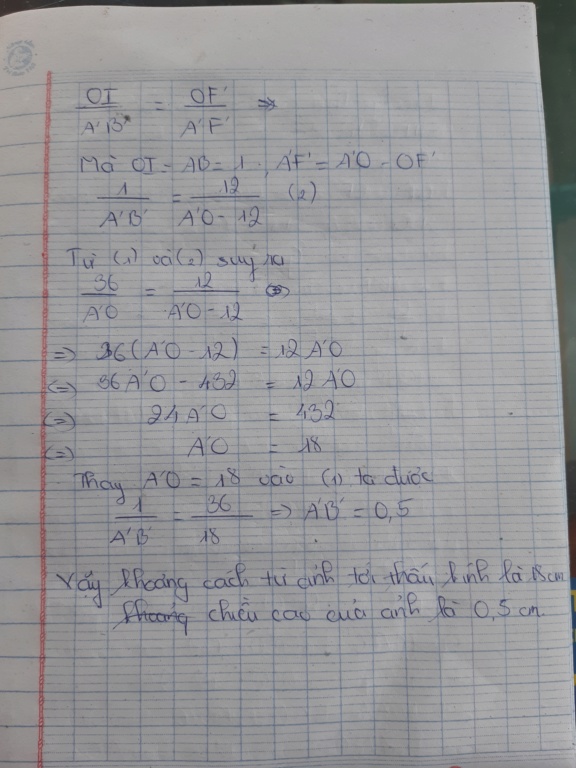 OI / A'B' = OF' / A'F' =>
Mà OI = AB = 1 , A'F' = A'O - OF'
1 / A'B' = 12 / A'O - 12 (2)
Từ (1) và (2) suy ra
36 / A'O = 12 / A'O - 12
=> 36(A'O - 12) = 12 A'O
<=> 36A'O - 432 = 12 A'O
<=> 24A'O = 432
<=> A'O = 18
Thay A'O = 18 vào (1) ta được
1 / A'B' = 36 / 18 => A'B' = 0,5
Vậy khoảng cách từ ảnh tới thấu kính là 18cm
khoảng chiều cao của ảnh là 0,5 cm.